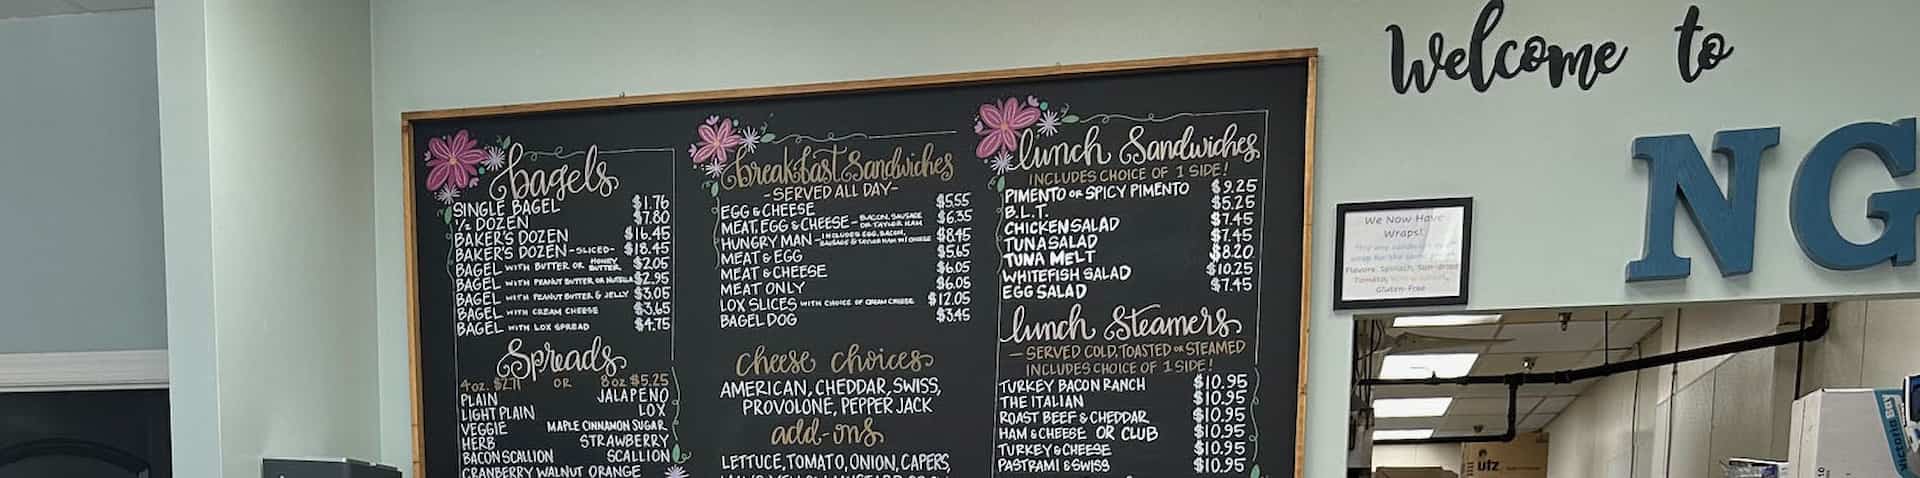 bagels
SINGLE BAGEL $1.76
½ DOZEN $7.80
BAKER'S DOZEN $16.45
BAKER'S DOZEN -SLICED- $18.45
BAGEL WITH BUTTER OR HONEY BUTTER $2.05
BAGEL WITH PEANUT BUTTER OR NUTELLA $2.95
BAGEL WITH PEANUT BUTTER & JELLY $3.05
BAGEL WITH CREAM CHEESE $3.65
BAGEL WITH LOX SPREAD $4.75
Spreads
4oz. $2.71 OR 8oz $5.25
PLAIN JALAPEÑO
LIGHT PLAIN LOX
VEGGIE MAPLE CINNAMON SUGAR
HERB STRAWBERRY
BACON SCALLION SCALLION
CRANBERRY WALNUT ORANGE
breakfast Sandwiches
-SERVED ALL DAY-
EGG & CHEESE $5.55
MEAT, EGG & CHEESE - BACON, SAUSAGE OR TAYLOR HAM $6.35
HUNGRY MAN - INCLUDES EGG, BACON, SAUSAGE & TAYLOR HAM W/ CHEESE $8.45
MEAT & EGG $5.65
MEAT & CHEESE $6.05
MEAT ONLY $6.05
LOX SLICES WITH CHOICE OF CREAM CHEESE $12.05
BAGEL DOG $3.45
cheese choices
AMERICAN, CHEDDAR, SWISS,
PROVOLONE, PEPPER JACK
add-ons
LETTUCE, TOMATO, ONION, CAPERS,
lunch Sandwiches
INCLUDES CHOICE OF 1 SIDE!
PIMENTO OR SPICY PIMENTO $9.25
B.L.T. $5.25
CHICKEN SALAD $7.45
TUNA SALAD $7.45
TUNA MELT $8.20
WHITEFISH SALAD $10.25
EGG SALAD $7.45
lunch Steamers
- SERVED COLD, TOASTED OR STEAMED
INCLUDES CHOICE OF 1 SIDE!
TURKEY BACON RANCH $10.95
THE ITALIAN $10.95
ROAST BEEF & CHEDDAR $10.95
HAM & CHEESE OR CLUB $10.95
TURKEY & CHEESE $10.95
PASTRAMI & SWISS $10.95
Welcome to
NG
We Now Have
Wraps!
Flavors: Spinach, Sun-dried
Tomato,
Gluten-Free
utz
Victoria Bay